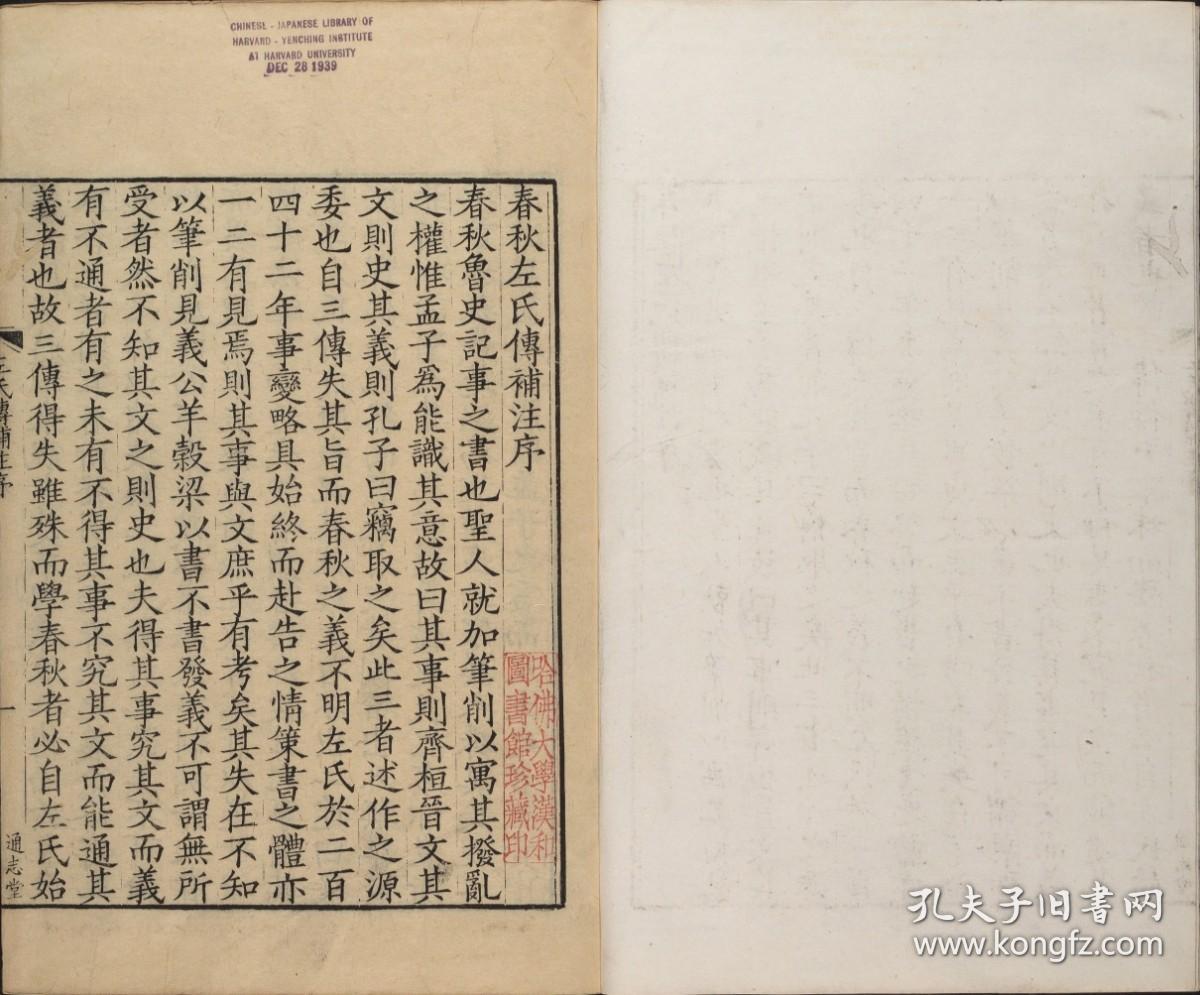 CHINESE - JAPANESE LIBRARY OF
HARVARD - YENCHING INSTITUTE
AT HARVARD UNIVERSITY
DEC 28 1939
春秋左氏傳補注序
春秋魯史記事之書也聖人就加筆削以寓其撥亂
之權惟孟子爲能識其意故曰其事則齊桓晉文其
文則史其義則孔子曰竊取之矣此三者述作之源
委也自三傳失其旨而春秋之義不明左氏於二百
四十二年事變略具始終而赴告之情策書之體亦
一二有見焉則其事與文庶乎有考矣其失在不知
以筆削見義公羊榖梁以書不書發義不可謂無所
受者然不知其文之則史也夫得其事究其文而義
有不通者有之未有不得其事不究其文而能通其
義者也故三傳得失雖殊而學春秋者必自左氏始
氏傳補注序
一
通志堂
哈佛大學漢和
圖書館珍藏印
孔夫子旧书网
www.kongfz.com